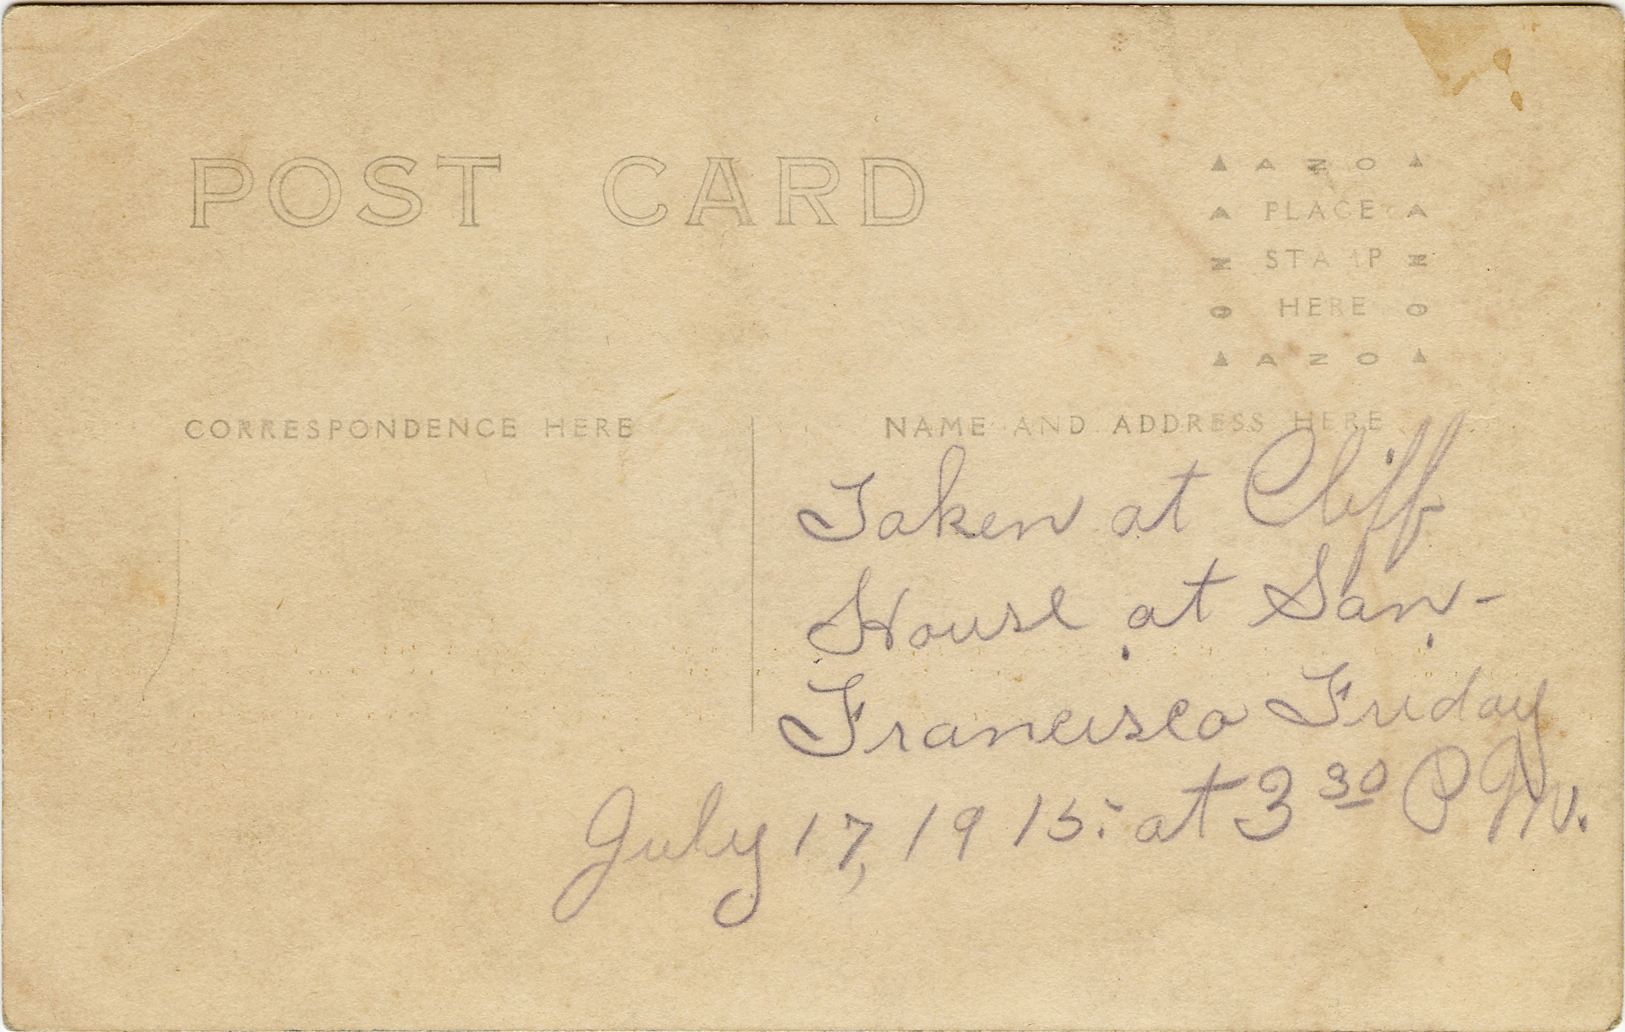 POST CARD
▲ A Z O ▲
A PLACE A
Z STAMP Z
O HERE O
▲ A Z O ▲
CORRESPONDENCE HERE
NAME AND ADDRESS HERE
Taken at Cliff
House at San-
Francisco Friday
July 17, 1915: at 3 30 P M.